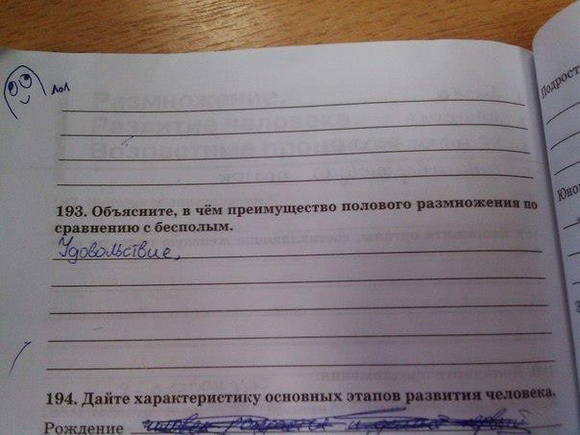 лол
Подрост
193. Объясните, в чём преимущество полового размножения по
сравнению с бесполым.
Удовольствие,
194. Дайте характеристику основных этапов развития человека.
Рождение